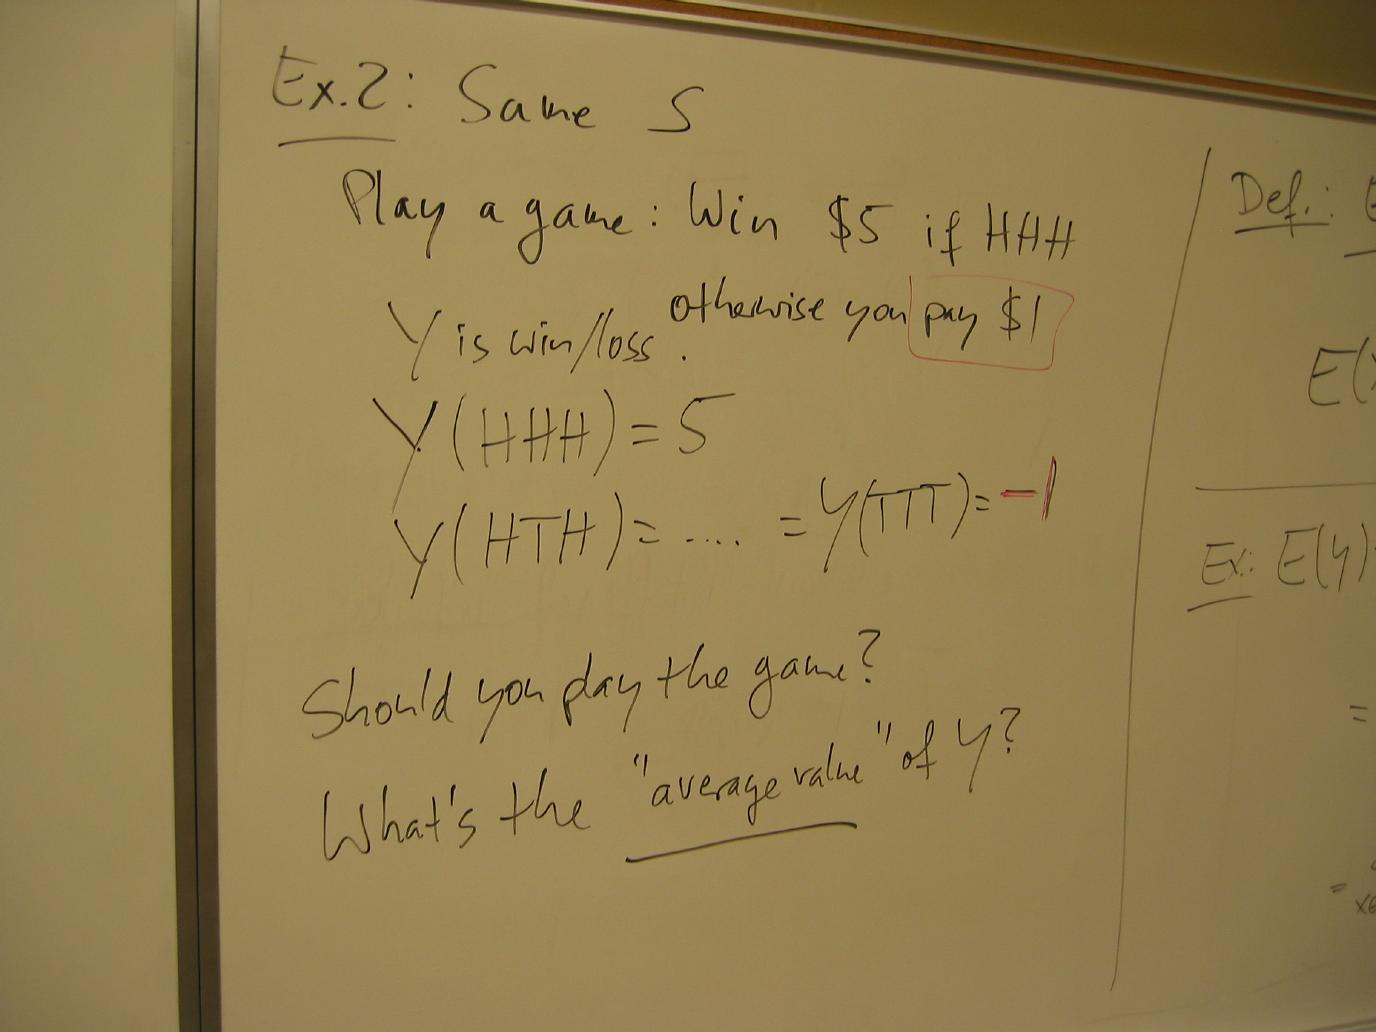 Ex.2: Same S
Play a game: Win $5 if HHH
otherwise you pay $1
Y is win/loss.
Y(HHH) = 5
Y(HTH) = .... = Y(TTT) = -1
Should you play the game?
What's the "average value" of Y?
Def.:
E(
Ex: E(Y)
=
=